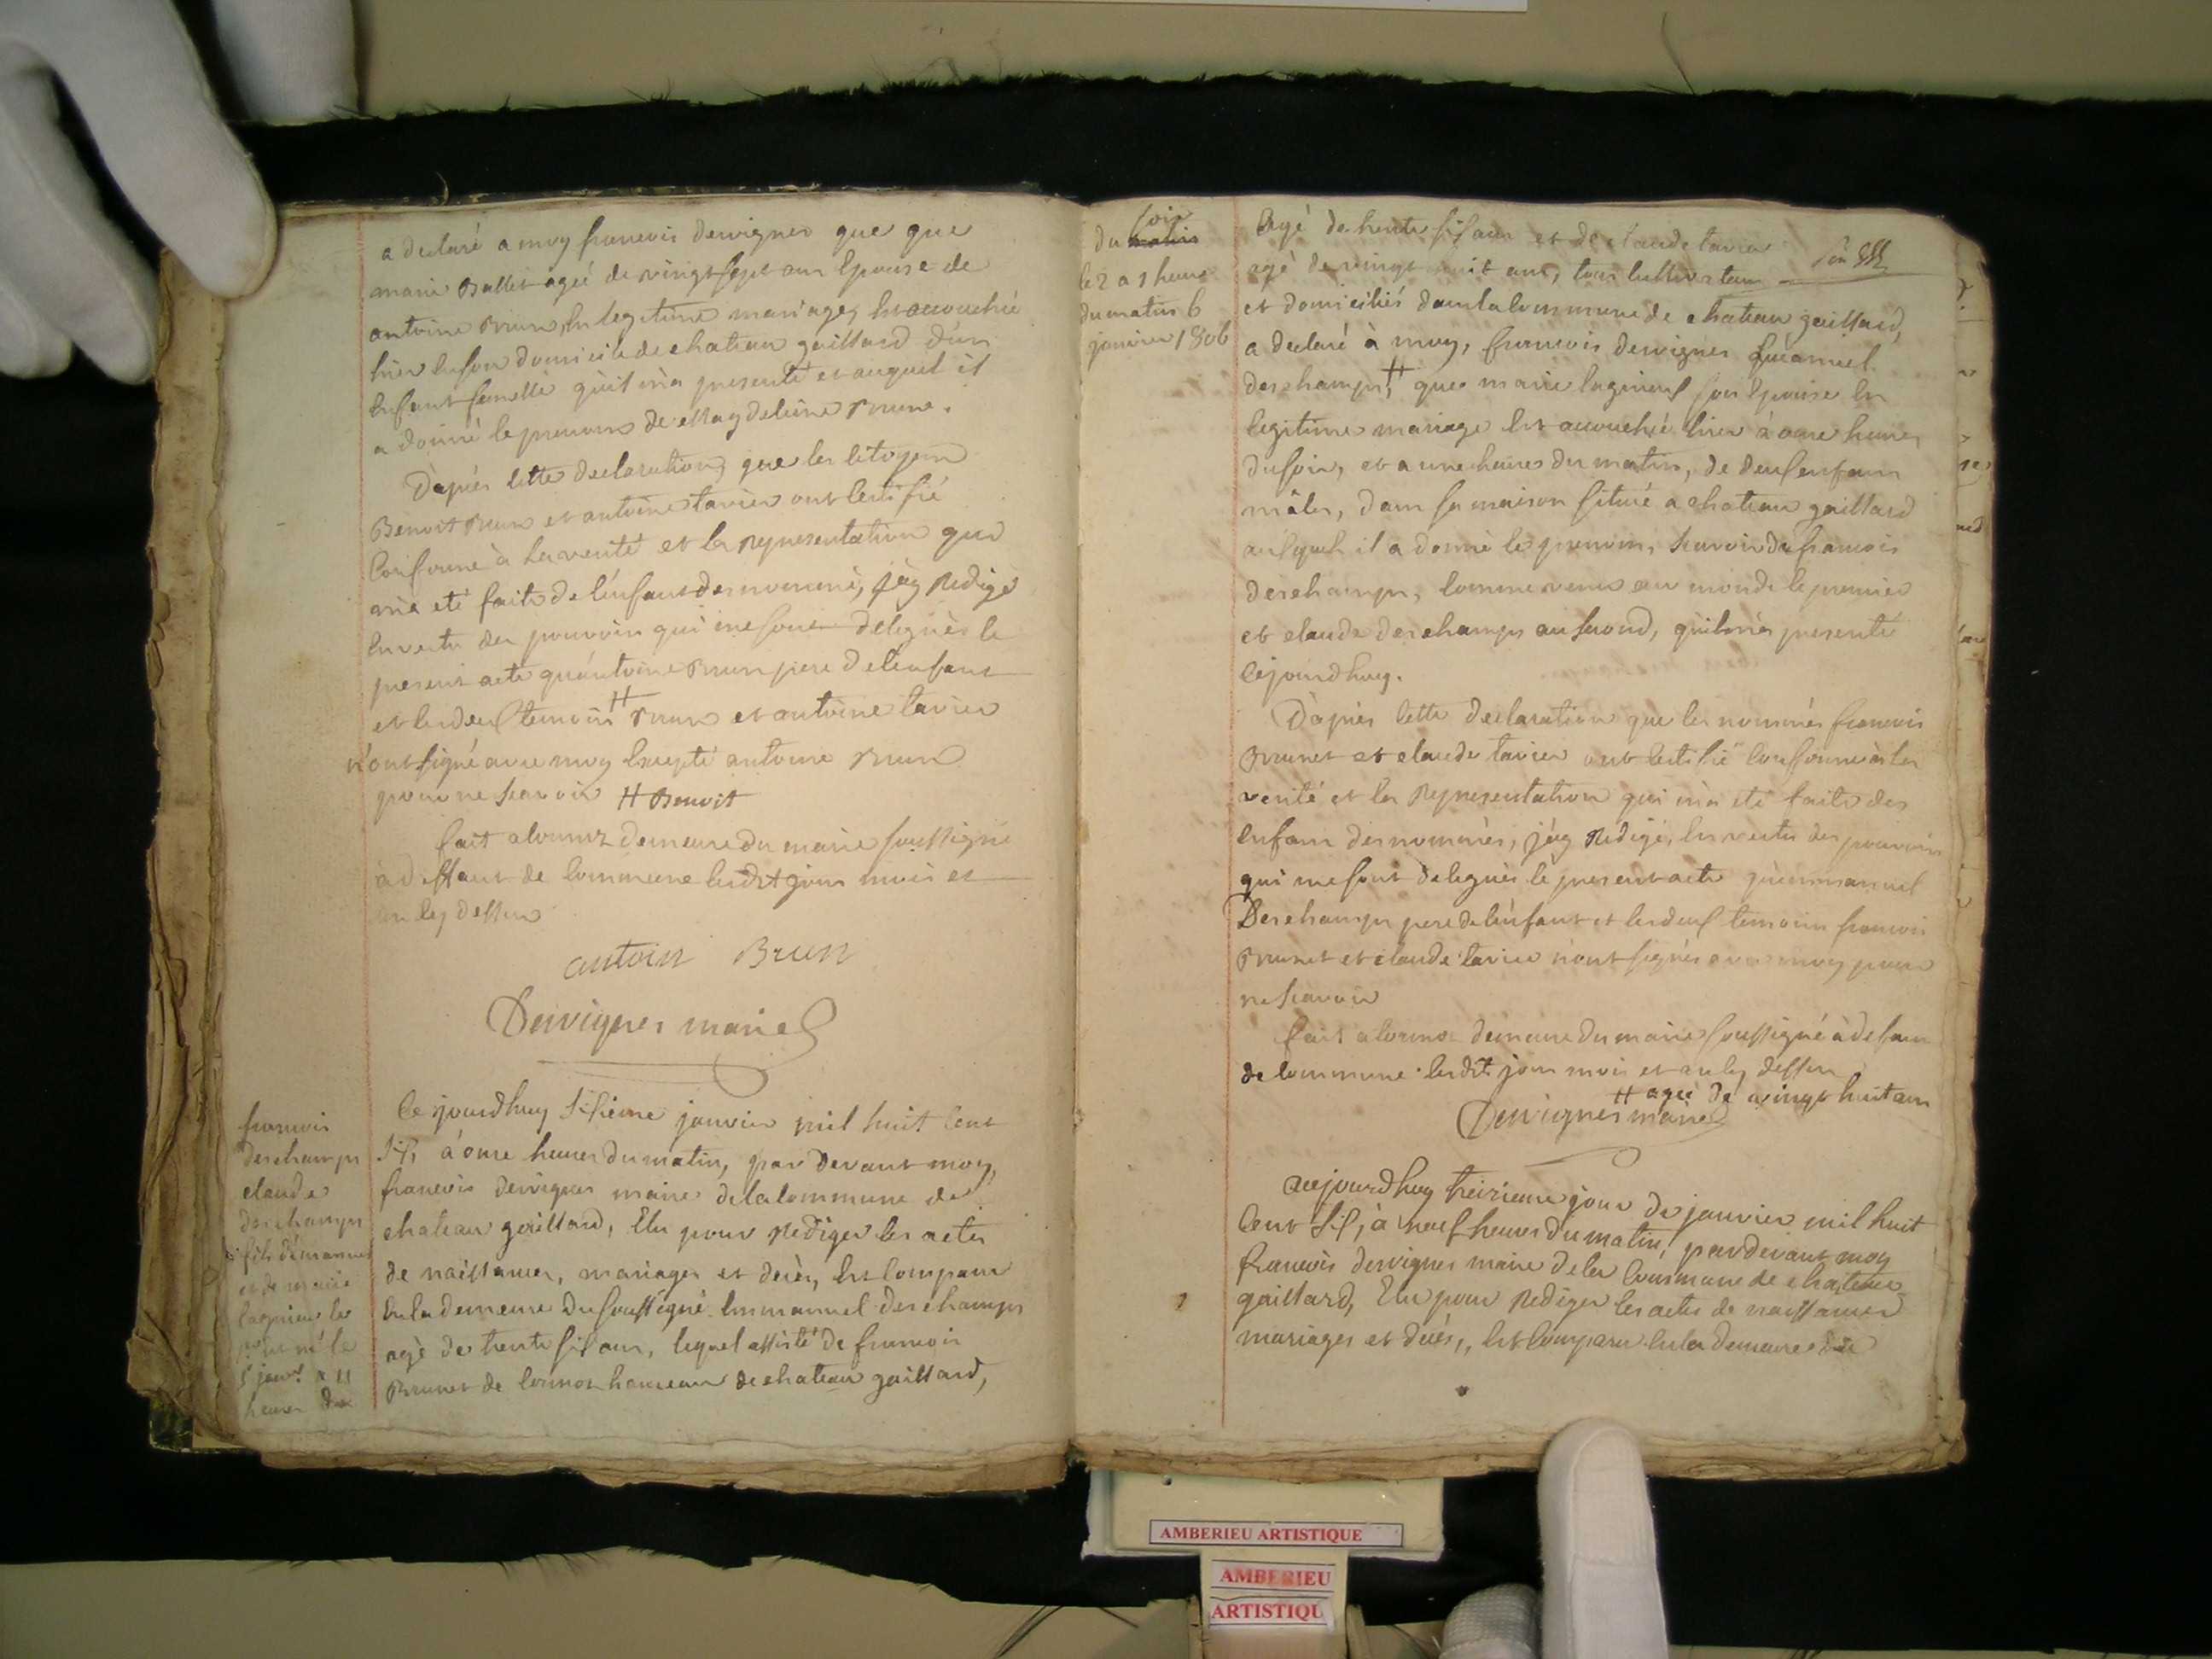 a declaré a moy francois dervignes que que
marie Ballet agée de vingt sept ans Epouse de
antoine Brun, En legitime mariage, Est accouchée
hier En son domicile de chateau gaillard d'un
Enfant femelle qu'il m'a presenté et auquel il
a donné le prenom de Magdeleine Brun.
D'après cette declaration, que les citoyens
Benoit Brun et antoine tavier ont Certifié
Conforme à la verité et la representation qui
m'a eté faite de l'enfant denommé, j'ay Redigé
En vertu des pouvoirs qui me sont delegués le
present acte qu'antoine Brun pere de l'enfant
et les deux temoins # Brun et antoine tavier
n'ont signé avec moy Excepté antoine Brun
pour ne scavoir # Benoit
fait a Cormoz demeure du maire soussigné
à deffaut de Commune lesdit jour mois et
an cy dessus
antoin Brun
Dervignes maire
francois
deschamps
claude
deschamps
fils d'emanuel
et de marie
lagnieux le
pr est né le
5 janvr a 11
heures du
Ce jourdhuy sixieme janvier mil huit Cent
six, à onze heures du matin, par devant moy,
francois dervignes maire de la Commune de
chateau gaillard, Elu pour Rediger les actes
de naissances, mariages et decès, Est Comparu
En la demeure du soussigné Emmanuel deschamps
agé de trente six ans, lequel assisté de francois
Brunet de Cormoz hameau de chateau gaillard,
soir
du matin
le 2 a 1 heure
du matin 6
janvier 1806
Agé de trente six ans et de claude tavier
agé de vingt huit ans, tous Cultivateurs
et domiciliés dans la Commune de chateau gaillard,
a declaré à moy, francois dervignes qu'emanuel
deschamps, # que marie lagnieux son Epouse En
legitime mariage Est accouchée hier à onze heures
du soir, et a une heures du matin, de deux enfans
mâles, dans sa maison située a chateau gaillard
auxquels il a donné les prenoms, scavoir de francois
deschamps, Comme venu au monde le premier
et claude deschamps au second, qu'il m'a presenté
Cejourdhuy.
D'après Cette declaration que les nommés francois
Brunet et claude tavier ont Certifié Conforme à la
verité et la Representation qui m'a eté faite des
Enfans denommés, j'ay Redigé, En vertu des pouvoirs
qui me sont delegués le present acte qu'emmanuel
Deschamps pere de l'enfant et les deux temoins francois
Brunet et claude tavier n'ont signés avec moy pour
ne scavoir
fait a Cormoz demeure du maire soussigné à defaut
de Commune lesdit jour mois et an cy dessus
# agée de vingt huit ans
Dervignes maire
Aujourdhuy treizieme jour de janvier mil huit
Cent six, à neuf heures du matin, pardevant moy
francois dervignes maire de la Commune de chateau
gaillard, Elu pour Rediger les actes de naissances
mariages et decés, Est Comparu En la demeure du
AMBERIEU ARTISTIQUE
AMBERIEU
ARTISTIQU